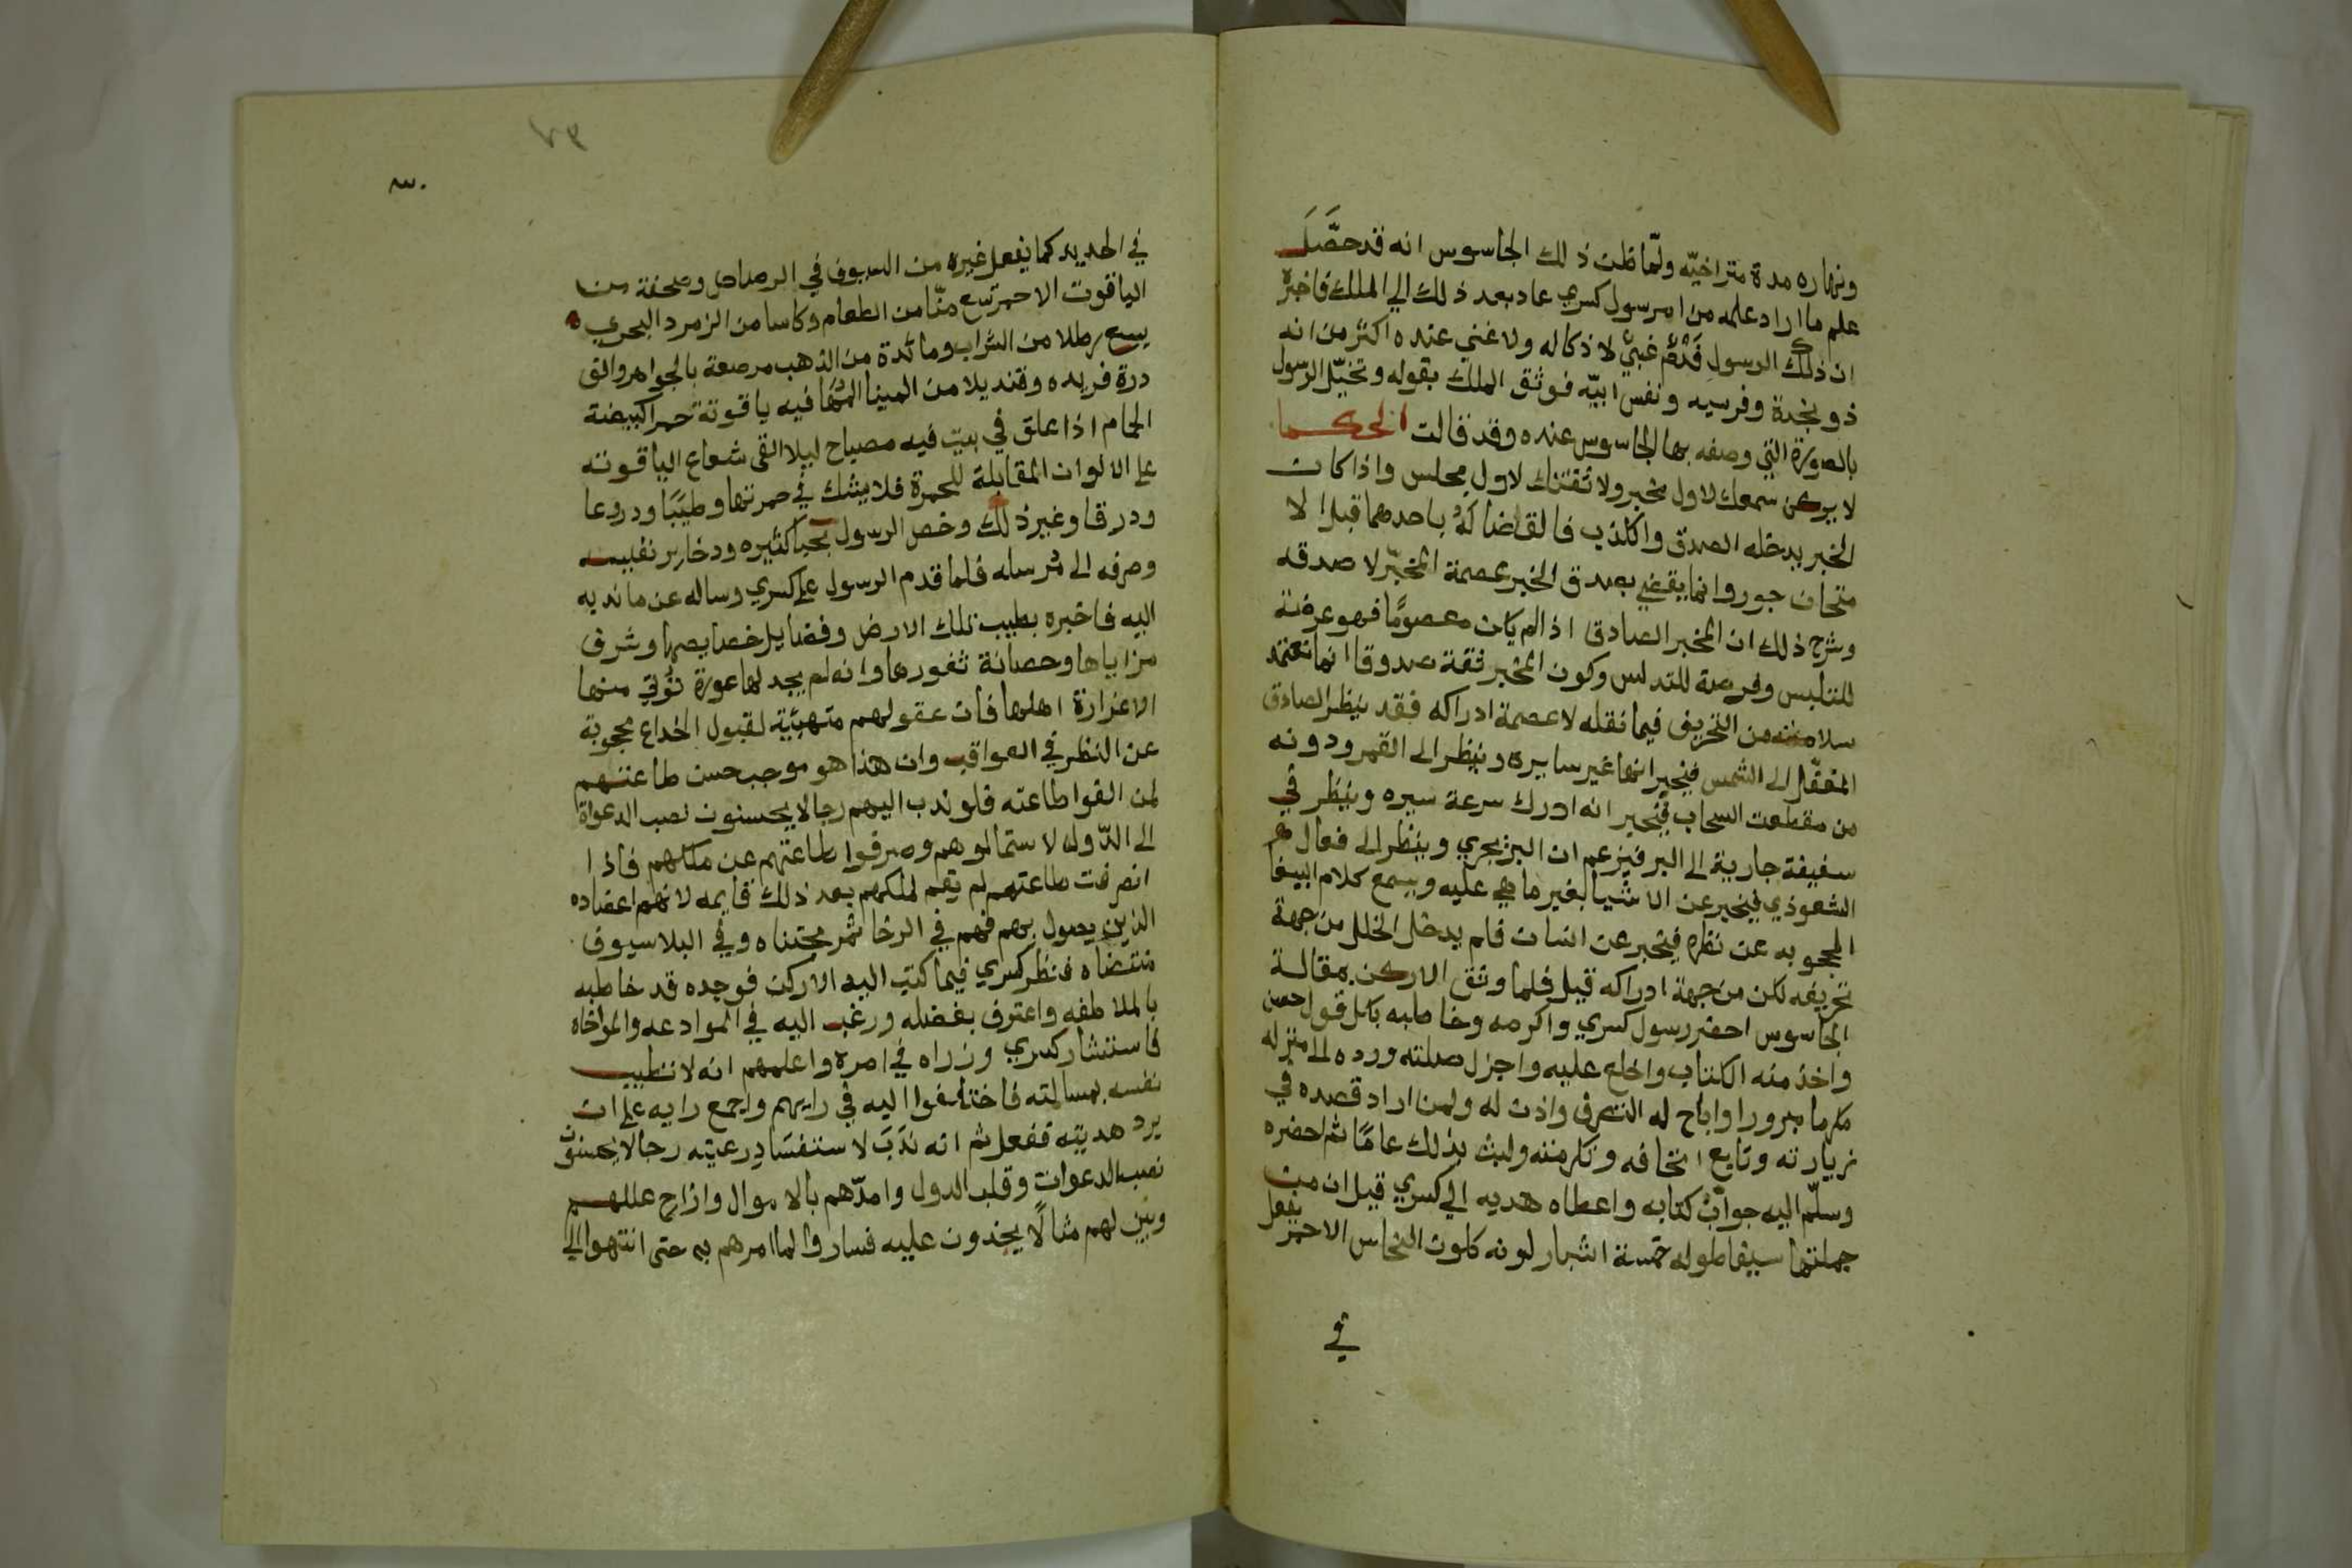 ونهاره مدة متراخيّه ولمّا ظن ذلك الجاسوس انه قد حصَّلَ
علم ما اراد علمه من امر رسول كسري عاد بعد ذلك الي الملك فاخبرْه
ان ذلك الرسول فَدْمٌ غبيٌّ لا ذكا له ولا غني عنده اكثر من انه
ذو نجدة وفرسيه ونفس ابيّه فوثق الملك بقوله وتخيّل الرسول
بالصورة التي وصفه بها الجاسوس عنده وقد قالت الحكما
لا يركن سمعك لاول مخبر ولا ثقتك لاول مجلس واذا كان
الخبر يدخله الصدق والكذب فالقضا لهُ باحدهما قبل الا
متحان جور وانما يقضي بصدق الخبر عصمة المخبّر لا صدقه
وشرح ذلك ان المخبر الصادق اذا لم يكن معصومًا فهو عرضة
للتلبس وفرصة للتدلس وكون المخبر ثقة صدوقا انما تعتمد
سلامته من التحريف فيما نقله لا عصمة ادراكه فقد ينظر الصادق
المغفّل الى الشمس فيخبر انها غير سايره وينظر الى القمر ودونه
من مقطعت السحاب فيخبر انه ادرك سرعة سيره وينظر في
سفينة جارية الى البر فيزعم ان البر يجري وينظر الى فعال
الشعوذي فيخبر عن الاشيا بغير ما هي عليه ويسمع كلام الببغا
المحجوبه عن نظره فيخبر عن انسان فلم يدخل الخلل من جهة
تحريفه لكن من جهة ادراكه قيل فلما وثق الاركن بمقالة
الجاسوس احضر رسول كسري واكرمه وخاطبه بكل قول حسن
واخذ منه الكتاب واخلع عليه واجزل صلته ورده الى منزله
مكرما مبرورا واباح له التصرف واذن له ولمن اراد قصده في
زيارته وتابع اتحافه وتكرمته ولبث بذلك عامًا ثم احضره
وسلّم اليه جوابْ كتابه واعطاه هديه الي كسري قيل ان من
جملتها سيفا طوله خمسة اشبار لونه كلون النحاس الاحمر يفعل
في
٣٠
في الحديد كما يفعل غيره من السيوف في الرصاص وصحفة من
الياقوت الاحمر تسع منّا من الطعام وكاسا من الزمرد البحري
يسع رطلا من الشراب ومائدة من الذهب مرصعة بالجواهر والقي
درة فريده وقنديلا من المينا المُهَا فيه ياقوتة حمرا كبيضة
الحمام اذا علق في بيت فيه مصباح ليلا القى شعاع الياقوته
على الالوان المقابلة للحمرة فلا يشك في حمرتها وطيبًا ودروعا
ودرقا وغير ذلك وخص الرسول كثيره وذخاير نفيسه
وصرفه الى مُرسله فلما قدم الرسول على كسري وساله عن ما ندبه
اليه فاخبره بطيب تلك الارض وفضايل خصايصها وشرف
مزاياها وحصانة ثغورها وانه لم يجد لها عورة تؤتي منها
الا غزارة اهلها فان عقولهم متهيّية لقبول الخداع محجوبة
عن النظر في العواقب وان هذا هو موجب حسن طاعتهم
لمن الفوا طاعته فلو ندب اليهم رجالا يحسنون نصب الدعواة
الى الدّوله لاستمالوهم وصرفوا طاعتهم عن ملكهم فاذا
انصرفت طاعتهم لم يقم لملكهم بعد ذلك قايمه لانهم اعضاده
الذين يصول بهم فهم في الرخا ثمر مجتناه وفي البلا سيوف
منتضاه فنظر كسري فيما كتب اليه الاركن فوجده قد خاطبه
بالملاطفه واعترف بفضله ورغب اليه في الموادعه والمواخاه
فاستشار كسري وزراه في امره واعلمهم انه لا تطيب
نفسه بمسالمته فاختلفوا اليه في رايهم واجمع رايه على ان
يرد هديته ففعل ثم انه نَدَبَ لاستفسَادِ رعيته رجالا يحسنون
نصب الدعوات وقلب الدول وامدّهم بالاموال وازاح عللهم
وبيّن لهم مثالًا يحذون عليه فساروا لما امرهم به حتى انتهوا الى